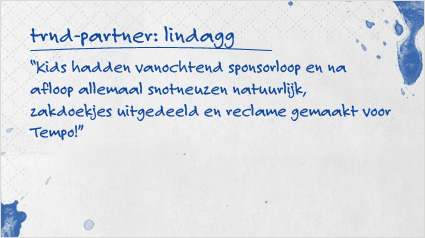 trnd-partner: lindagg
"Kids hadden vanochtend sponsorloop en na
afloop allemaal snotneuzen natuurlijk,
zakdoekjes uitgedeeld en reclame gemaakt voor
Tempo!"